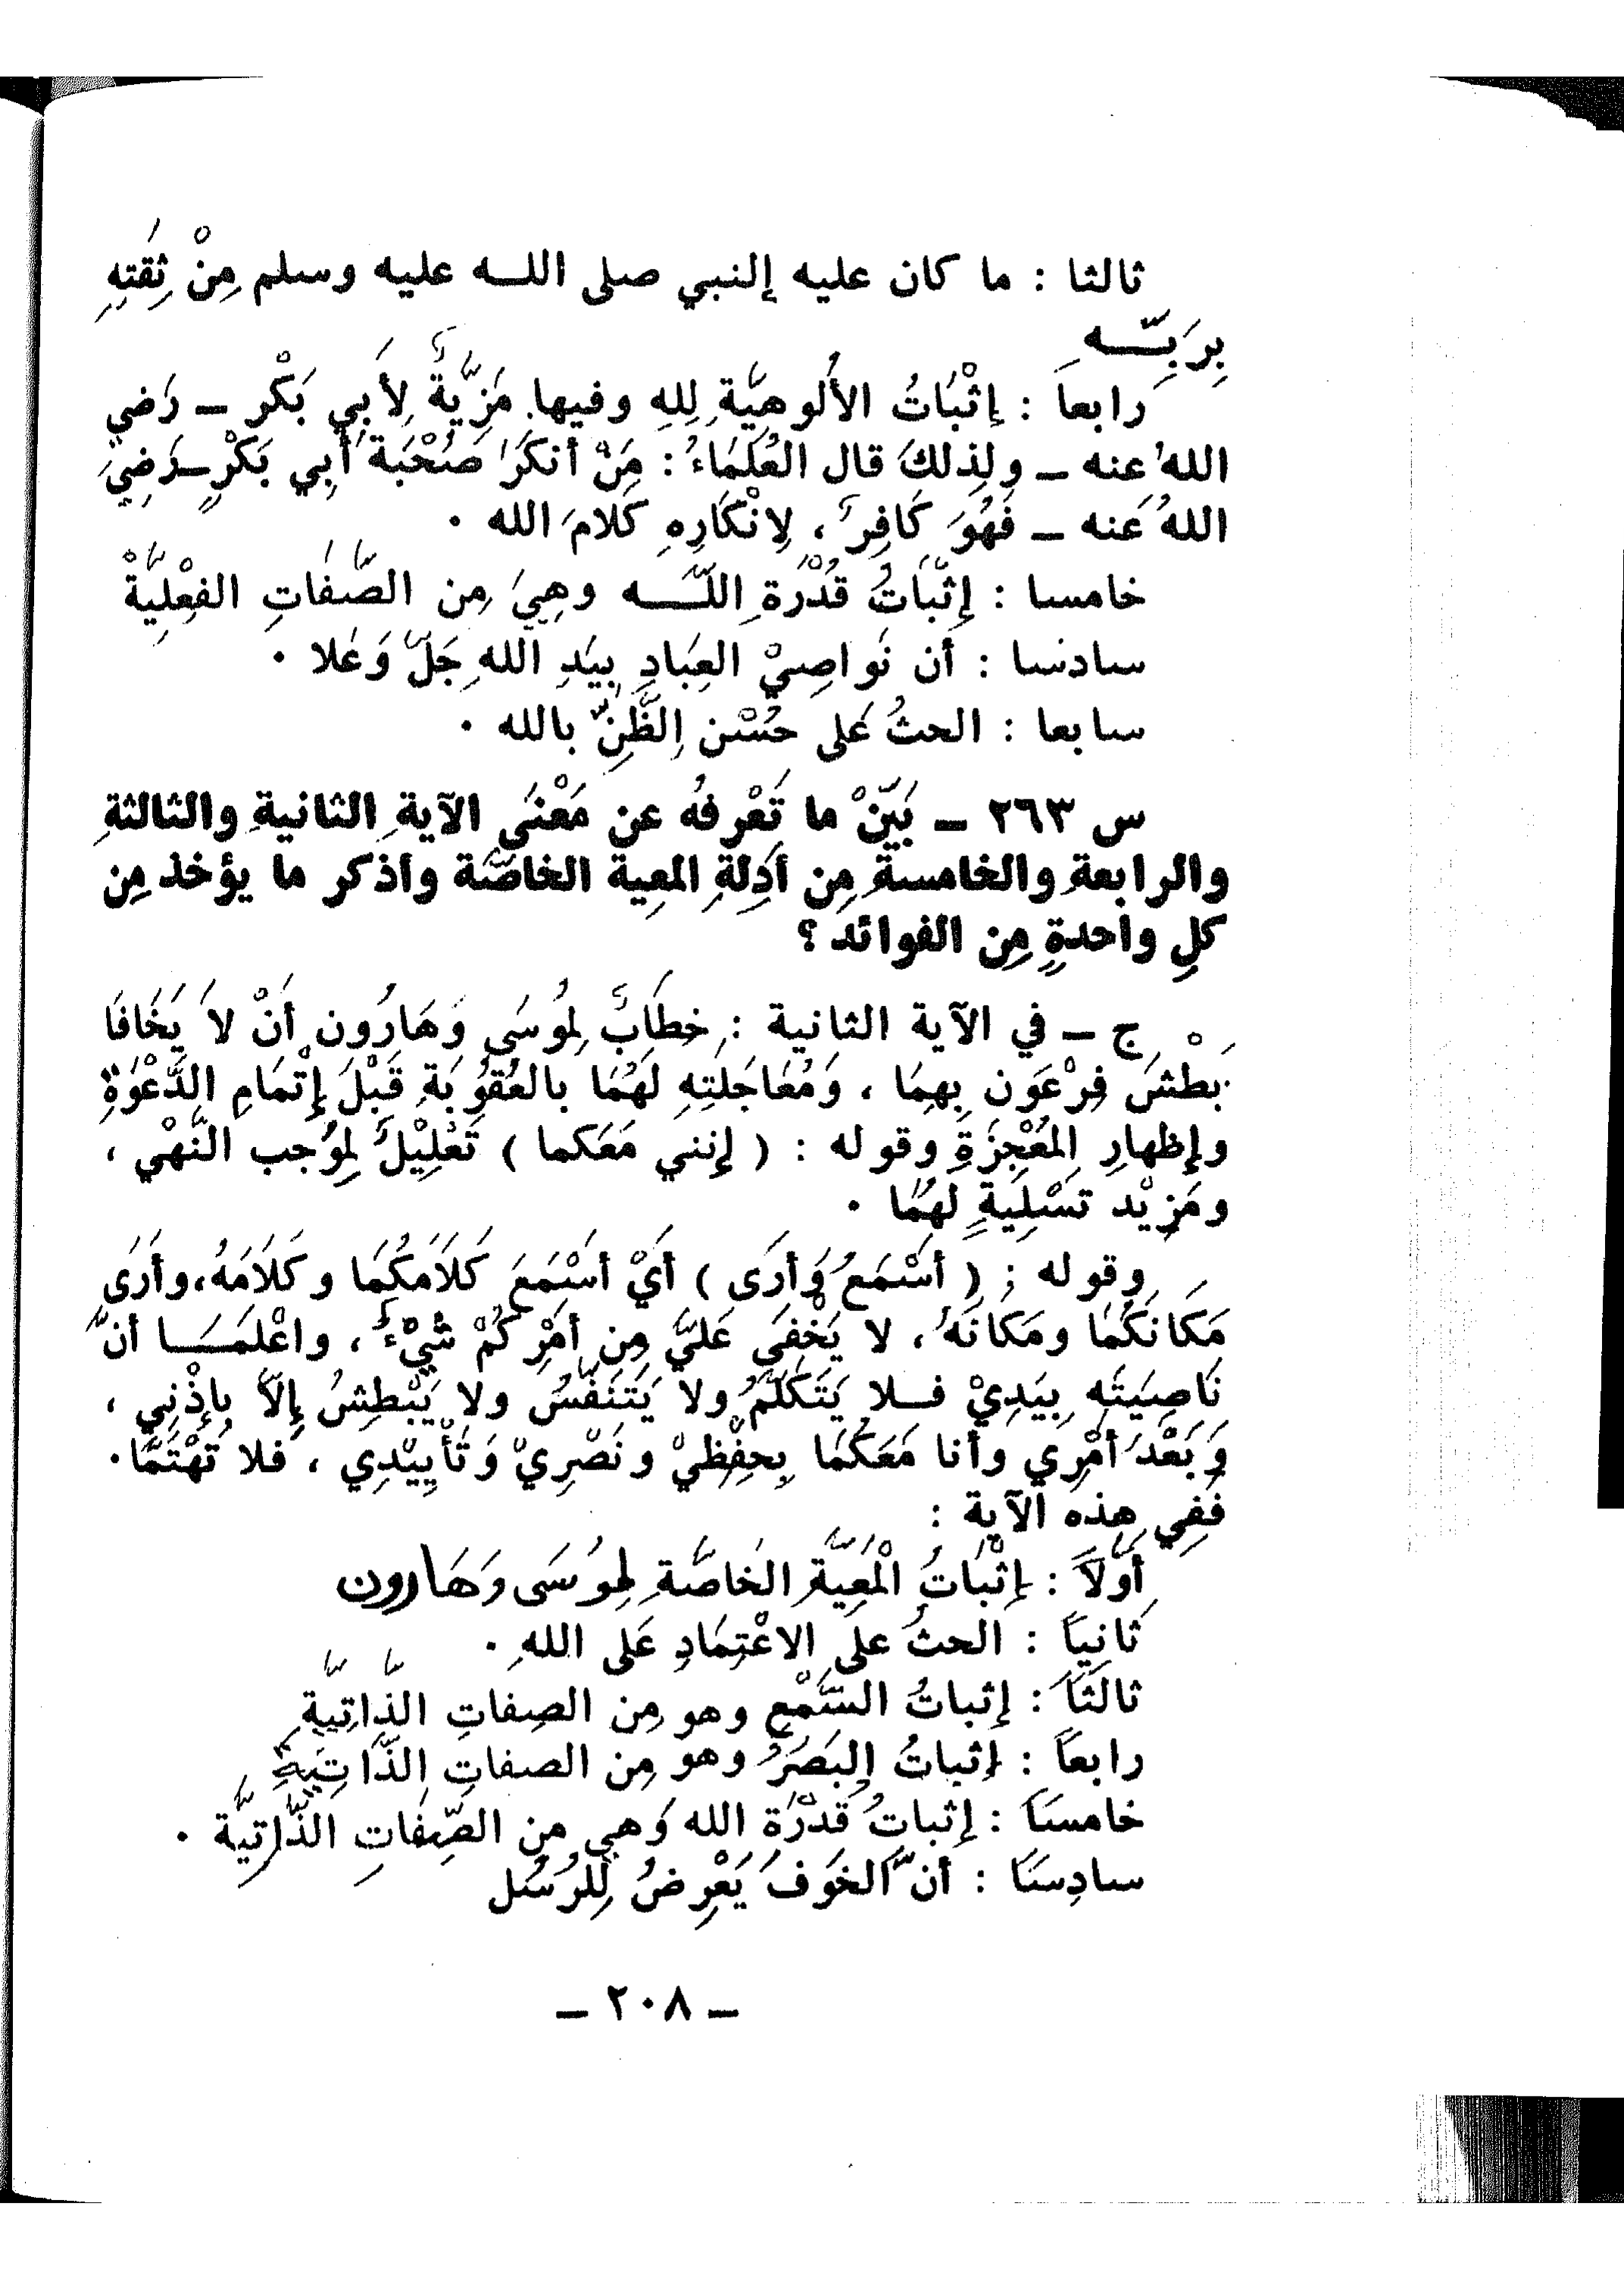 ثالثا : ما كان عليه النبي صلى الله عليه وسلم مِنْ ثِقَتِهِ
بِرَبِّهِ
رابعاً : إِثْبَاتُ الأُلوهِيَّةِ لِلهِ وفيها مَزِيَّةٌ لِأَبِي بَكْر – رَضي
اللهُ عنه – ولِذلكَ قال العُلَمَاءُ : مَنْ أَنكَرَ صُحْبَةَ أَبي بَكْرٍ – رَضِيَ
اللهُ عَنه – فَهُوَ كَافِرٌ ، لِإنْكَارِهِ كَلامَ الله .
خامسا : إِثْبَاتُ قُدْرَةِ اللهِ وهِيَ مِن الصِّفَاتِ الفِعْلِيَّةْ
سادسا : أن نَواصِيْ العِبَادِ بِيَدِ اللهِ جَلَّ وَعَلا .
سابعا : الحثُ عَلى حُسْنِ الظَّنِّ بالله .
س ٢٦٣ – بَيِّنْ ما تَعْرِفُه عن مَعْنَى الآيةِ الثانيةِ والثالثةِ
والرابعةِ والخامسةِ مِن أَدِلةِ المعِيةِ الخاصَّة واذكر ما يؤخذ مِن
كلِ واحدةٍ مِن الفوائد ؟
ج – في الآية الثانية : خِطَابٌ لِمُوسَى وَهَارُون أَنْ لاَ يَخَافَا
بَطْشَ فِرْعَون بِهِمَا ، وَمُعَاجَلَتِهِ لَهُمَا بالعُقُوبَةِ قَبْلَ إِتْمَامِ الدَّعْوَةِ
وإِظهارِ المُعْجِزَةِ وقوله : ( إِنني مَعَكما ) تَعْلِيْلٌ لِمُوجب النَّهْي ،
ومَزِيْد تَسْلِيةٍ لهُمَا .
وقوله : ( أَسْمَعُ وَأَرَى ) أَيْ أَسْمَعَ كَلَامَكُمَا وكَلَامَهُ،وأَرَى
مَكَانَكُمَا ومَكَانَهُ ، لا يَخْفَى عَليَّ مِن أَمْرِكُمْ شَيْءٌ ، واعْلَمَا أنَّ
نَاصِيَتَه بِيَدِيْ فلا يَتَكَلَّمُ ولا يَتَنَفَّسُ ولا يَبْطِشُ إِلاَّ بإِذْنِي ،
وَبَعْدَ أَمْرِي وأَنا مَعَكُمَا بِحِفْظِيْ ونَصْرِيْ وَتَأْيِيْدِي ، فلا تَهْتَمَّا.
فَفِي هذه الآية :
أَوّلاً : إِثْبَاتُ الْمَعِيَّةِ الخَاصَّةِ لِموُسَى وَهَارون
ثَانِياً : الحثُ على الاعْتِمَادِ عَلى اللهِ .
ثالثاً : إِثباتُ السَّمْعِ وهو مِن الصِفاتِ الذَّاتِيَّةِ
رابعاً : إثباتُ البَصَرُ وهو مِن الصفاتِ الذَّاتِيَّةِ
خامسَاً : إِثباتُ قُدْرَةِ الله وَهي مِن الصِّفَاتِ الذَّاتِيَّة .
سادِسَاً : أَنَّ الخَوفَ يَعْرِضُ لِلرُسُل
– ٢٠٨ –